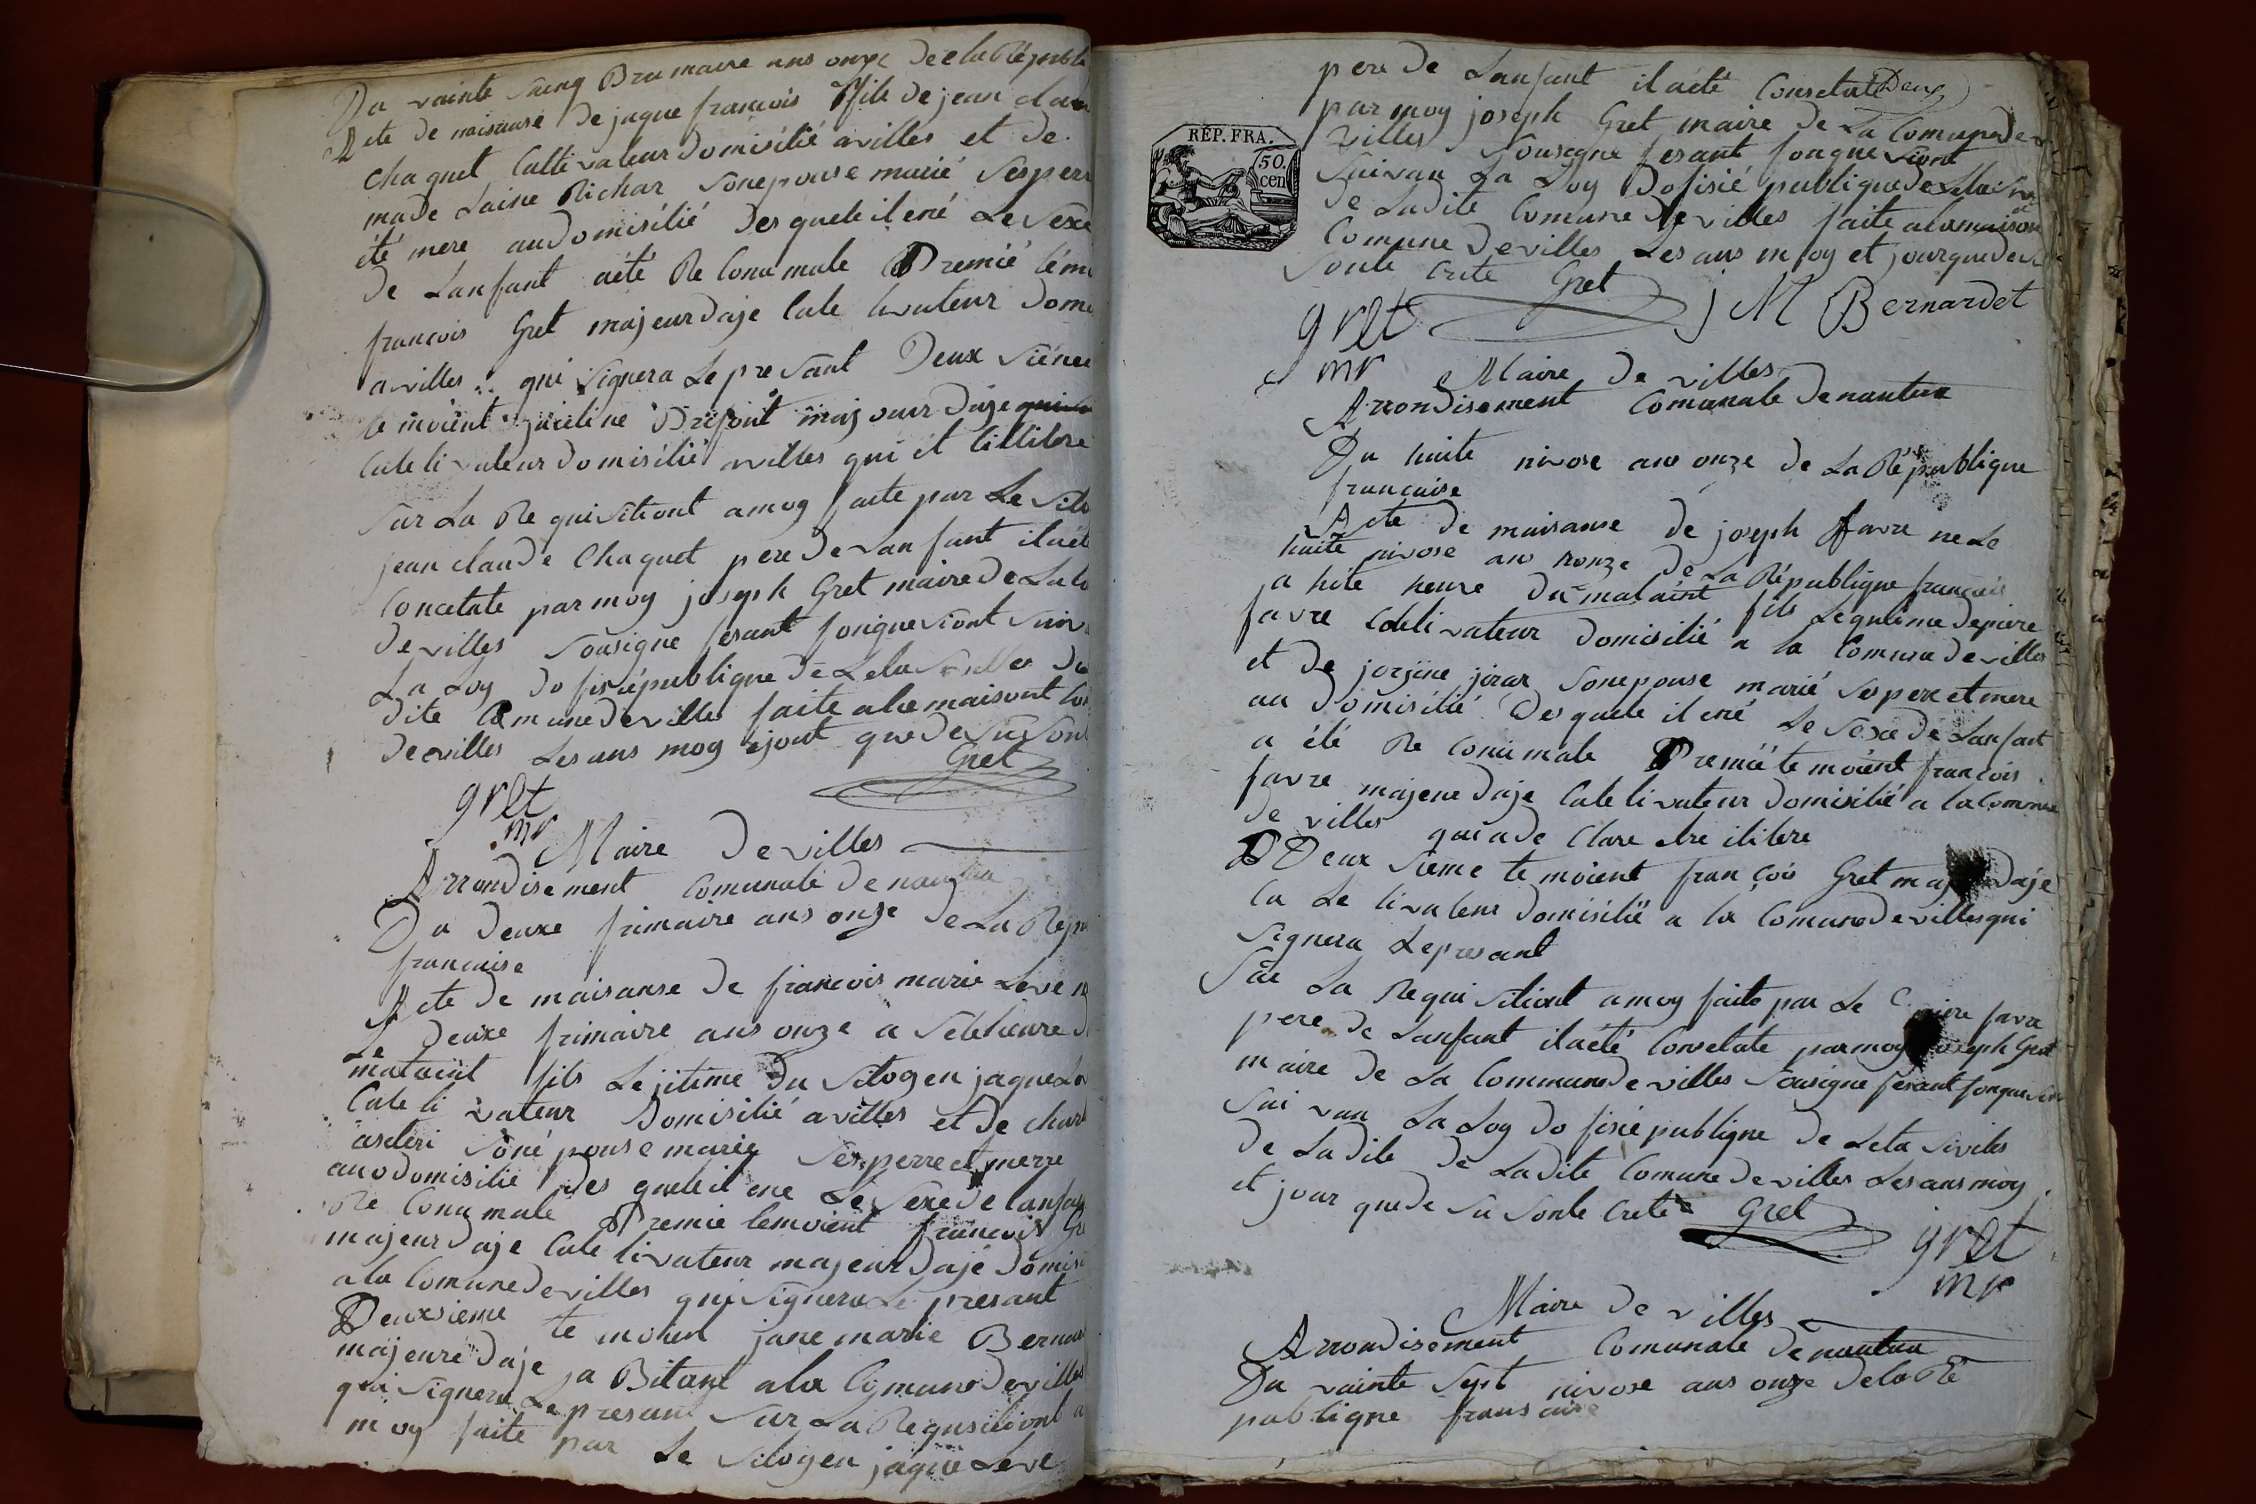 Du vainte saing Brumaire ans onze de la Républi
Acte de naisanse de jaque françois fils de jean claude
chaquet Cultivateur domisilié a villes et de
made Laine Richar sonepouse marié ses pere
été mere audomisilié des quele il ené Le sexe
de Lanfant aété Re Conu male Premié témo
françois Gret majeur daje Cule tivateur dome
a villes qui signera Le presant Deux siéme
te moient majour daje
Cule tivateur domisilié a villes qui et
sur La Re quisitiont a moy faite par Le sito
jean claude Chaquet pere de Lanfant il aét
Concetate par moy joseph Gret maire de La Co
de villes sousigne fesant fonquesiont suiva
La Loy do fisié publique de Leta siviles de
dite Comune de villes faite a la maisont Co
de villes Les ans moy ejour que de su son
Gret
gret
mr
Maire de villes
Arrondisement Comunale de nantua
Du deuxe frimaire ans onze de La Répu
francaise
Acte de naisanse de francois marie Leve n
Le deuxe frimaire ans onze a sete heure d
mataint fils Lejitime du sitogen jaque Le
Cule ti vateur Domisilié a villes et de char
soné pouse marié ses perre et merre
auodomisilié des quele il ene Le sexe de lanfan
Re Conu male Premie temoient francois Gr
majeur daje Cule tivateur majeur dajé domisi
a la Comune de villes qui signera Le presant
Deuxsieme te moien jane marie Bernar
majeure daje a Bitant a la Comune de villes
qui signera Le presant sur La Requisitiont a
moy faite par Le sitogen jaque Leve
Deux
pere de Lanfant il aété Consetate
par moy joseph Gret maire de La Comune de
villes sousigne fesant fonquesiont
suivan La Loy dofisié publique de Leta siv
de Ladite Comune de villes faite a la maison
Comune de villes Les ans moy et jour que de su
sonte crite Gret
RÉP. FRA.
50.
cen
gret j M Bernardet
mr
Maire de villes
Arrondisement Comunale de nantua
Du huite nivose ans onze de La République
francaise
Acte de naisanse de joseph favre ne Le
huite nivose ans nonze de La République francaise
a hite heure du mataint fils Lequitime de piere
favre Cultivateur domisilié a la Comune de villes
et de jorjine jirar sonepouse marié ses pere et mere
au domisilié des quele il ené Le sexe de Lanfant
a été Re Conu male Premié te moient francois
favre majeue daje Cule tivateur domisilié a la Commune
de villes qui a de Clare etre ilitere
Deux sieme te moient françois Gret majeur daje
Cu Le tivateur domisilié a la Comune de villes qui
signera Le presant
sur La Requisitiont a moy faite par Le C piere favre
pere de Lanfant il aété Consetate par moy joseph Gret
maire de La Commune de villes sousigne fesant fonquesion
sui van La Loy do fisié publique de Leta siviles
de La dite de La dite Comune de villes Les ans moy
et jour que de su sonte Crite Gret
gret
mr
Maire de villes
Arrondisement Comunale de nantua
Du vainte sept nivose ans onze de la Ré
publique fransaise